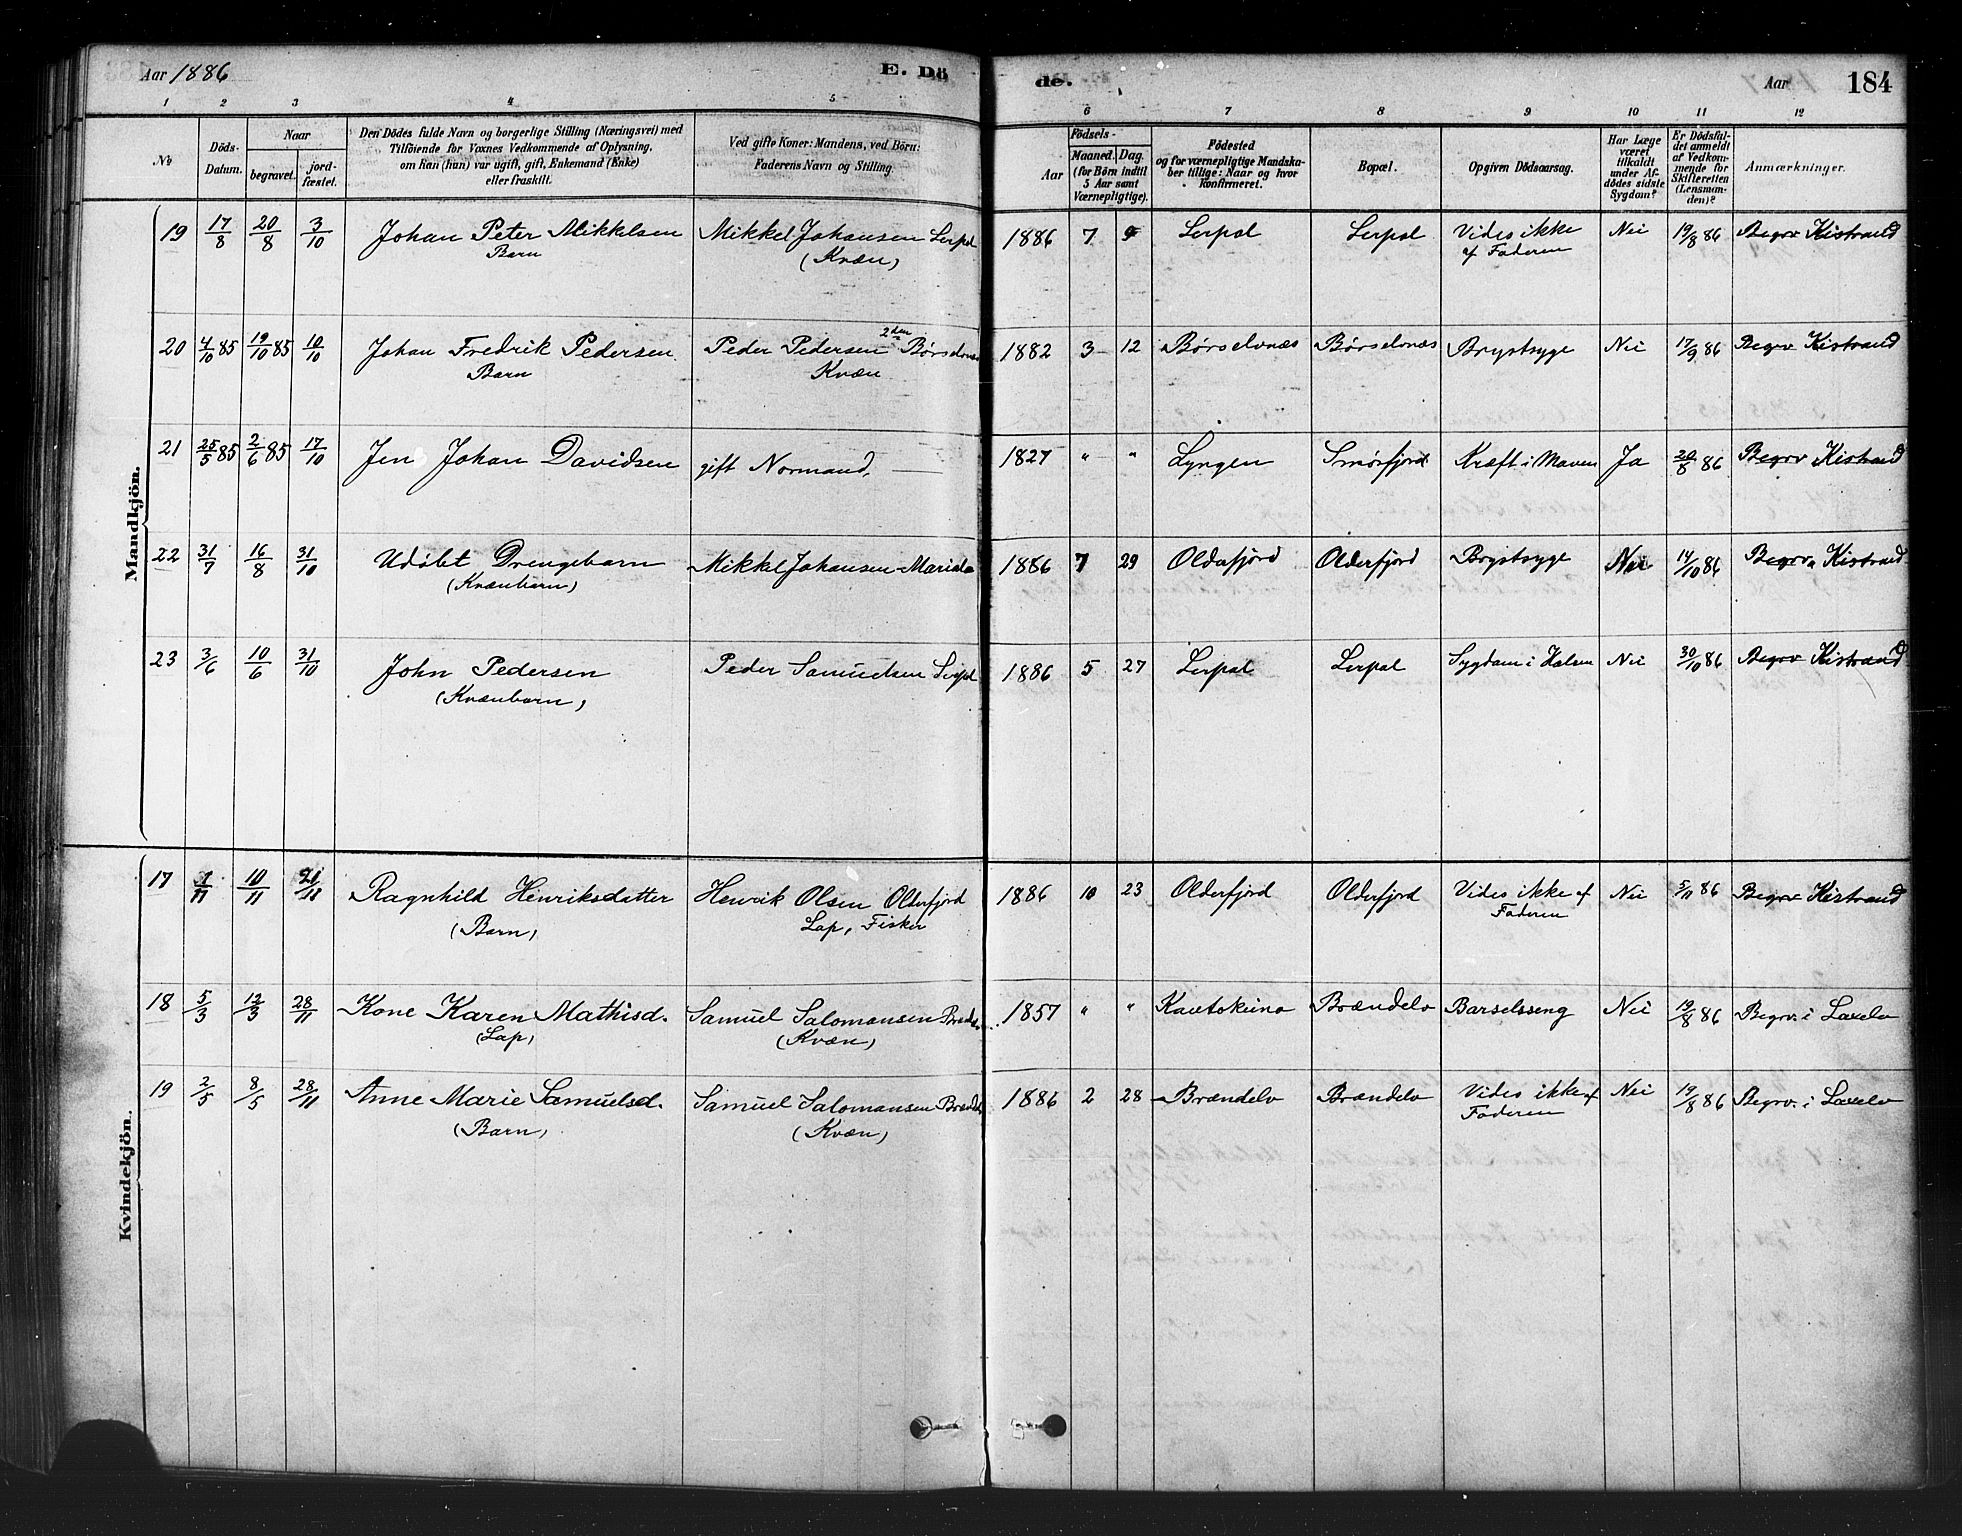 Aar 1886
E. Dö
de.
Aar
184
1 2 3 4 5 6 7 8 9 10 11 12
No
Döds-Datum.
Naar
begravet.
jord-fæstet.
Den Dödes fulde Navn og borgerlige Stilling (Næringsvei) med
Tilföiende for Voxnes Vedkommende af Oplysning,
om han (hun) var ugift, gift, Enkemand (Enke)
eller fraskilt.
Ved gifte Koner: Mandens, ved Börn:
Faderens Navn og Stilling.
Födsels-
Aar
Maaned. Dag.
(for Börn indtil
5 Aar samt
Værnepligtige).
Födested
og for værnepligtige Mandska-
ber tillige: Naar og hvor
Konfirmeret.
Bopæl.
Opgiven Dödsaarsag.
Har Læge
været
tilkaldt
under Af-
dödes sidste
Sygdom?
Er Dödsfal-
det anmeldt
af Vedkom-
mende for
Skifteretten
(Lensman-
den)?
Anmærkninger.
Mandkjön.
19 17/8 20/8 3/10 Johan Peter Mikkelsen Mikkel Johansen Lerpol 1886 7 9 Lerpol Lerpol Vides ikke Nei 19/8 86 Begrv Kistrand
Barn (Kvæn) af Faderen
20 4/10 85 19/10 85 10/10 Johan Fredrik Pedersen Peder Pedersen 2den Børselvnæs 1882 3 12 Børselvnæs Børselvnæs Brystsyge Nei 17/9 86 Begrv Kistrand
Barn Kvæn
21 25/5 85 2/6 85 17/10 Jen Johan Davidsen gift Normand, 1827 " " Lyngen Smørfjord Kræft i Maven Ja 20/8 86 Begrv Kistrand
22 31/7 16/8 31/10 Udøbt Drengebarn Mikkel Johansen 1886 7 29 Olderfjord Olderfjord Brystsyge Nei 14/10 86 Begrv. Kistrand
(Kvænbarn)
23 3/6 10/6 31/10 John Pedersen Peder Samuelsen Lerpol 1886 5 27 Lerpol Lerpol Sygdom i Halsen Nei 30/10 86 Begrv Kistrand
(Kvænbarn)
Kvindekjön.
17 10/11 21/11 Ragnhild Henriksdatter Henrik Olsen Olderfjord 1886 10 23 Olderfjord Olderfjord Vides ikke af Nei 5/11 86 Begrv Kistrand
(Barn) Lap, Fisker Faderen
18 5/3 12/3 28/11 Kone Karen Mathisd. Samuel Salomonsen 1857 " " Kautokeino Brændelv Barselsseng Nei 19/8 86 Begrv. i Laxelv
(Lap) (Kvæn)
19 2/5 8/5 28/11 Anne Marie Samuelsd. Samuel Salomonsen 1886 2 28 Brændelv Brændelv Vides ikke af Nei 19/8 86 Begrv. i Laxelv
(Barn) (Kvæn) Faderen